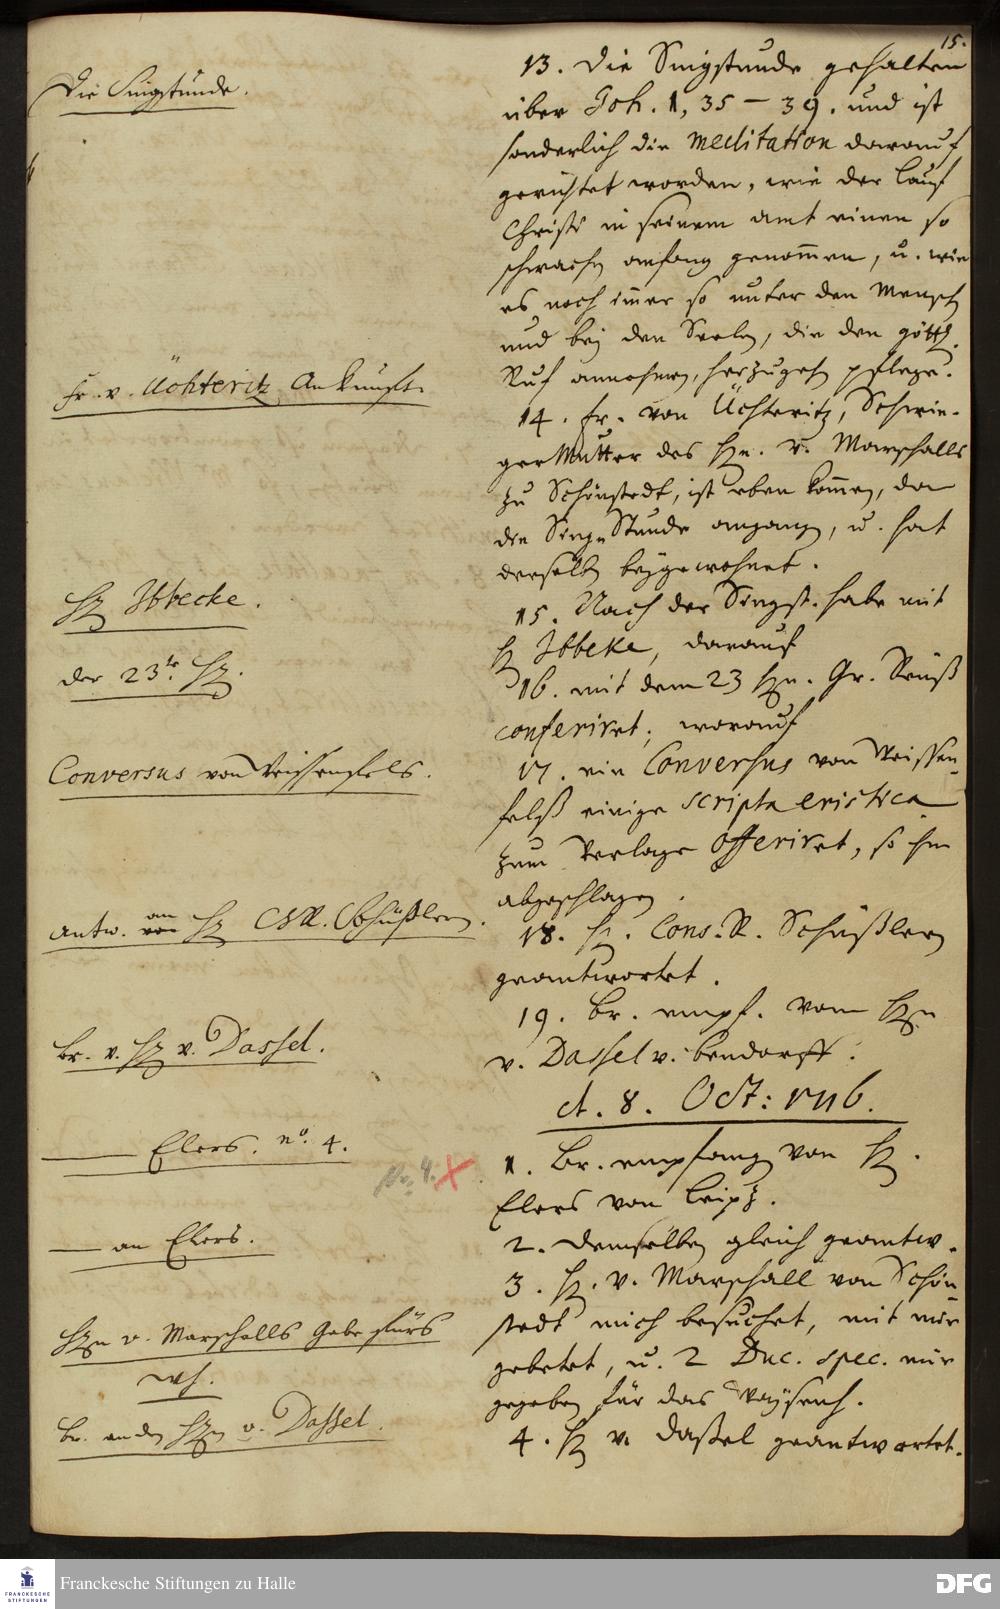 15.
Die Singstunde.
13. Die Singstunde gehalten
über Joh. 1, 35 – 39. und ist
sonderlich die meditation darauf
gerichtet worden, wie der Lauf
Christi in seinem amt einen so
schwachen anfang genommen, u. wie
es noch immer so unter den Mensch
und bey den Seelen, die den göttl.
Ruf annehmen, herzugehen pflege.
Fr. v. Üchteritz Ankunfft.
14. Fr. von Üchteritz, Schwie-
ger Mutter des Hn. v. Marschalls
zu Schönstedt, ist eben kommen, da
die Sing-Stunde angang, u. hat
derselben beygewohnet.
Hr Ibbecke.
15. Nach der Singst. habe mit
Hr Ibbeke, darauf
der 23te Hr.
16. mit dem 23 Hrn. Gr. Reuß
conferiret; worauf
Conversus von Weissenfels.
17. ein Conversus von Weissen-
felß einige scripta eristica
zum Verlage offeriret, so ihm
abgeschlagen.
antw. an Hr CR. Schüßlern.
18. H. Cons. R. Schüßlern
geantwortet.
Br. v. Hr v. Dassel.
19. Br. empf. vom Hrn
v. Dassel v. Bendorff.
d. 8. Oct: 1716.
Elers. no. 4.
No. 4.
1. Br. empfang von H.
Elers von Leipz.
an Elers.
2. Demselben gleich geantw.
3. H. v. Marschall von Schön-
stedt mich besuchet, mit mir
gebetet, u. 2 Duc. spec. mir
gegeben für das Waysenh.
Hrn v. Marschalls Gabe fürs
wh.
Br. an den Hrn v. Dassel.
4. Hr v. Daßel geantwortet.
Franckesche Stiftungen zu Halle
FRANCKESCHE
STIFTUNGEN
DFG